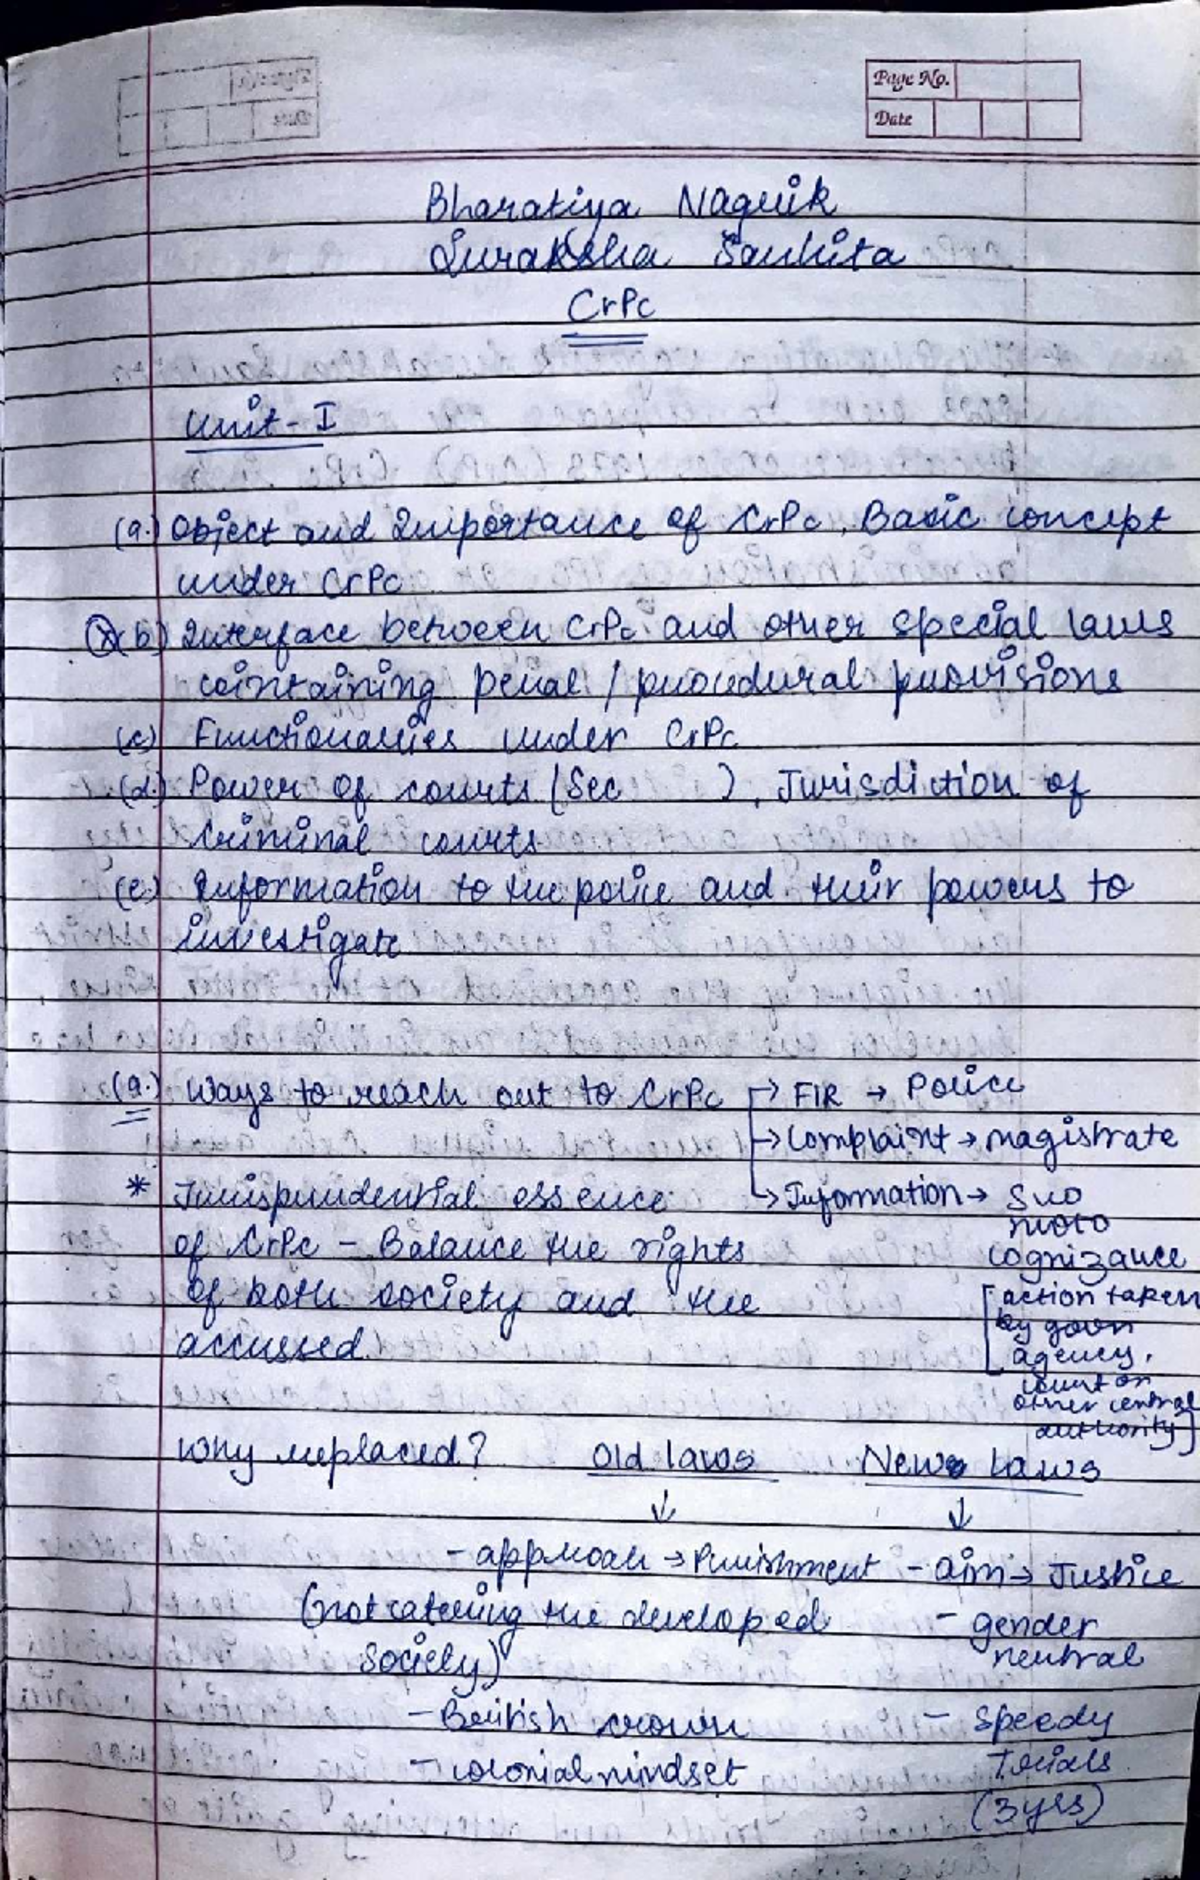 Page No.
Date
Bharatiya Nagrik
Suraksha Sanhita
CrPc
Unit-I
(a.) Object and Importance of CrPc, Basic concept
under CrPc
(b) Interface between CrPc and other special laws
containing penal / procedural provisions
(c) Functionaries under CrPc
(d.) Power of courts (Sec ), Jurisdiction of
Criminal courts
(e) Information to the police and their powers to
investigate
(a.) Ways to reach out to CrPc → FIR → Police
→ Complaint → Magistrate
* Jurisprudential essence → Information → Suo
moto
of CrPc - Balance the rights cognizance
of both society and the [action taken
by govn
accussed. agency,
court or
other central
authority]
Why replaced? Old laws New Laws
↓ ↓
- approach → Punishment - aim → Justice
(not catering the developed - gender
society) neutral
- British crown - speedy
- colonial mindset Trials
(3 yrs)